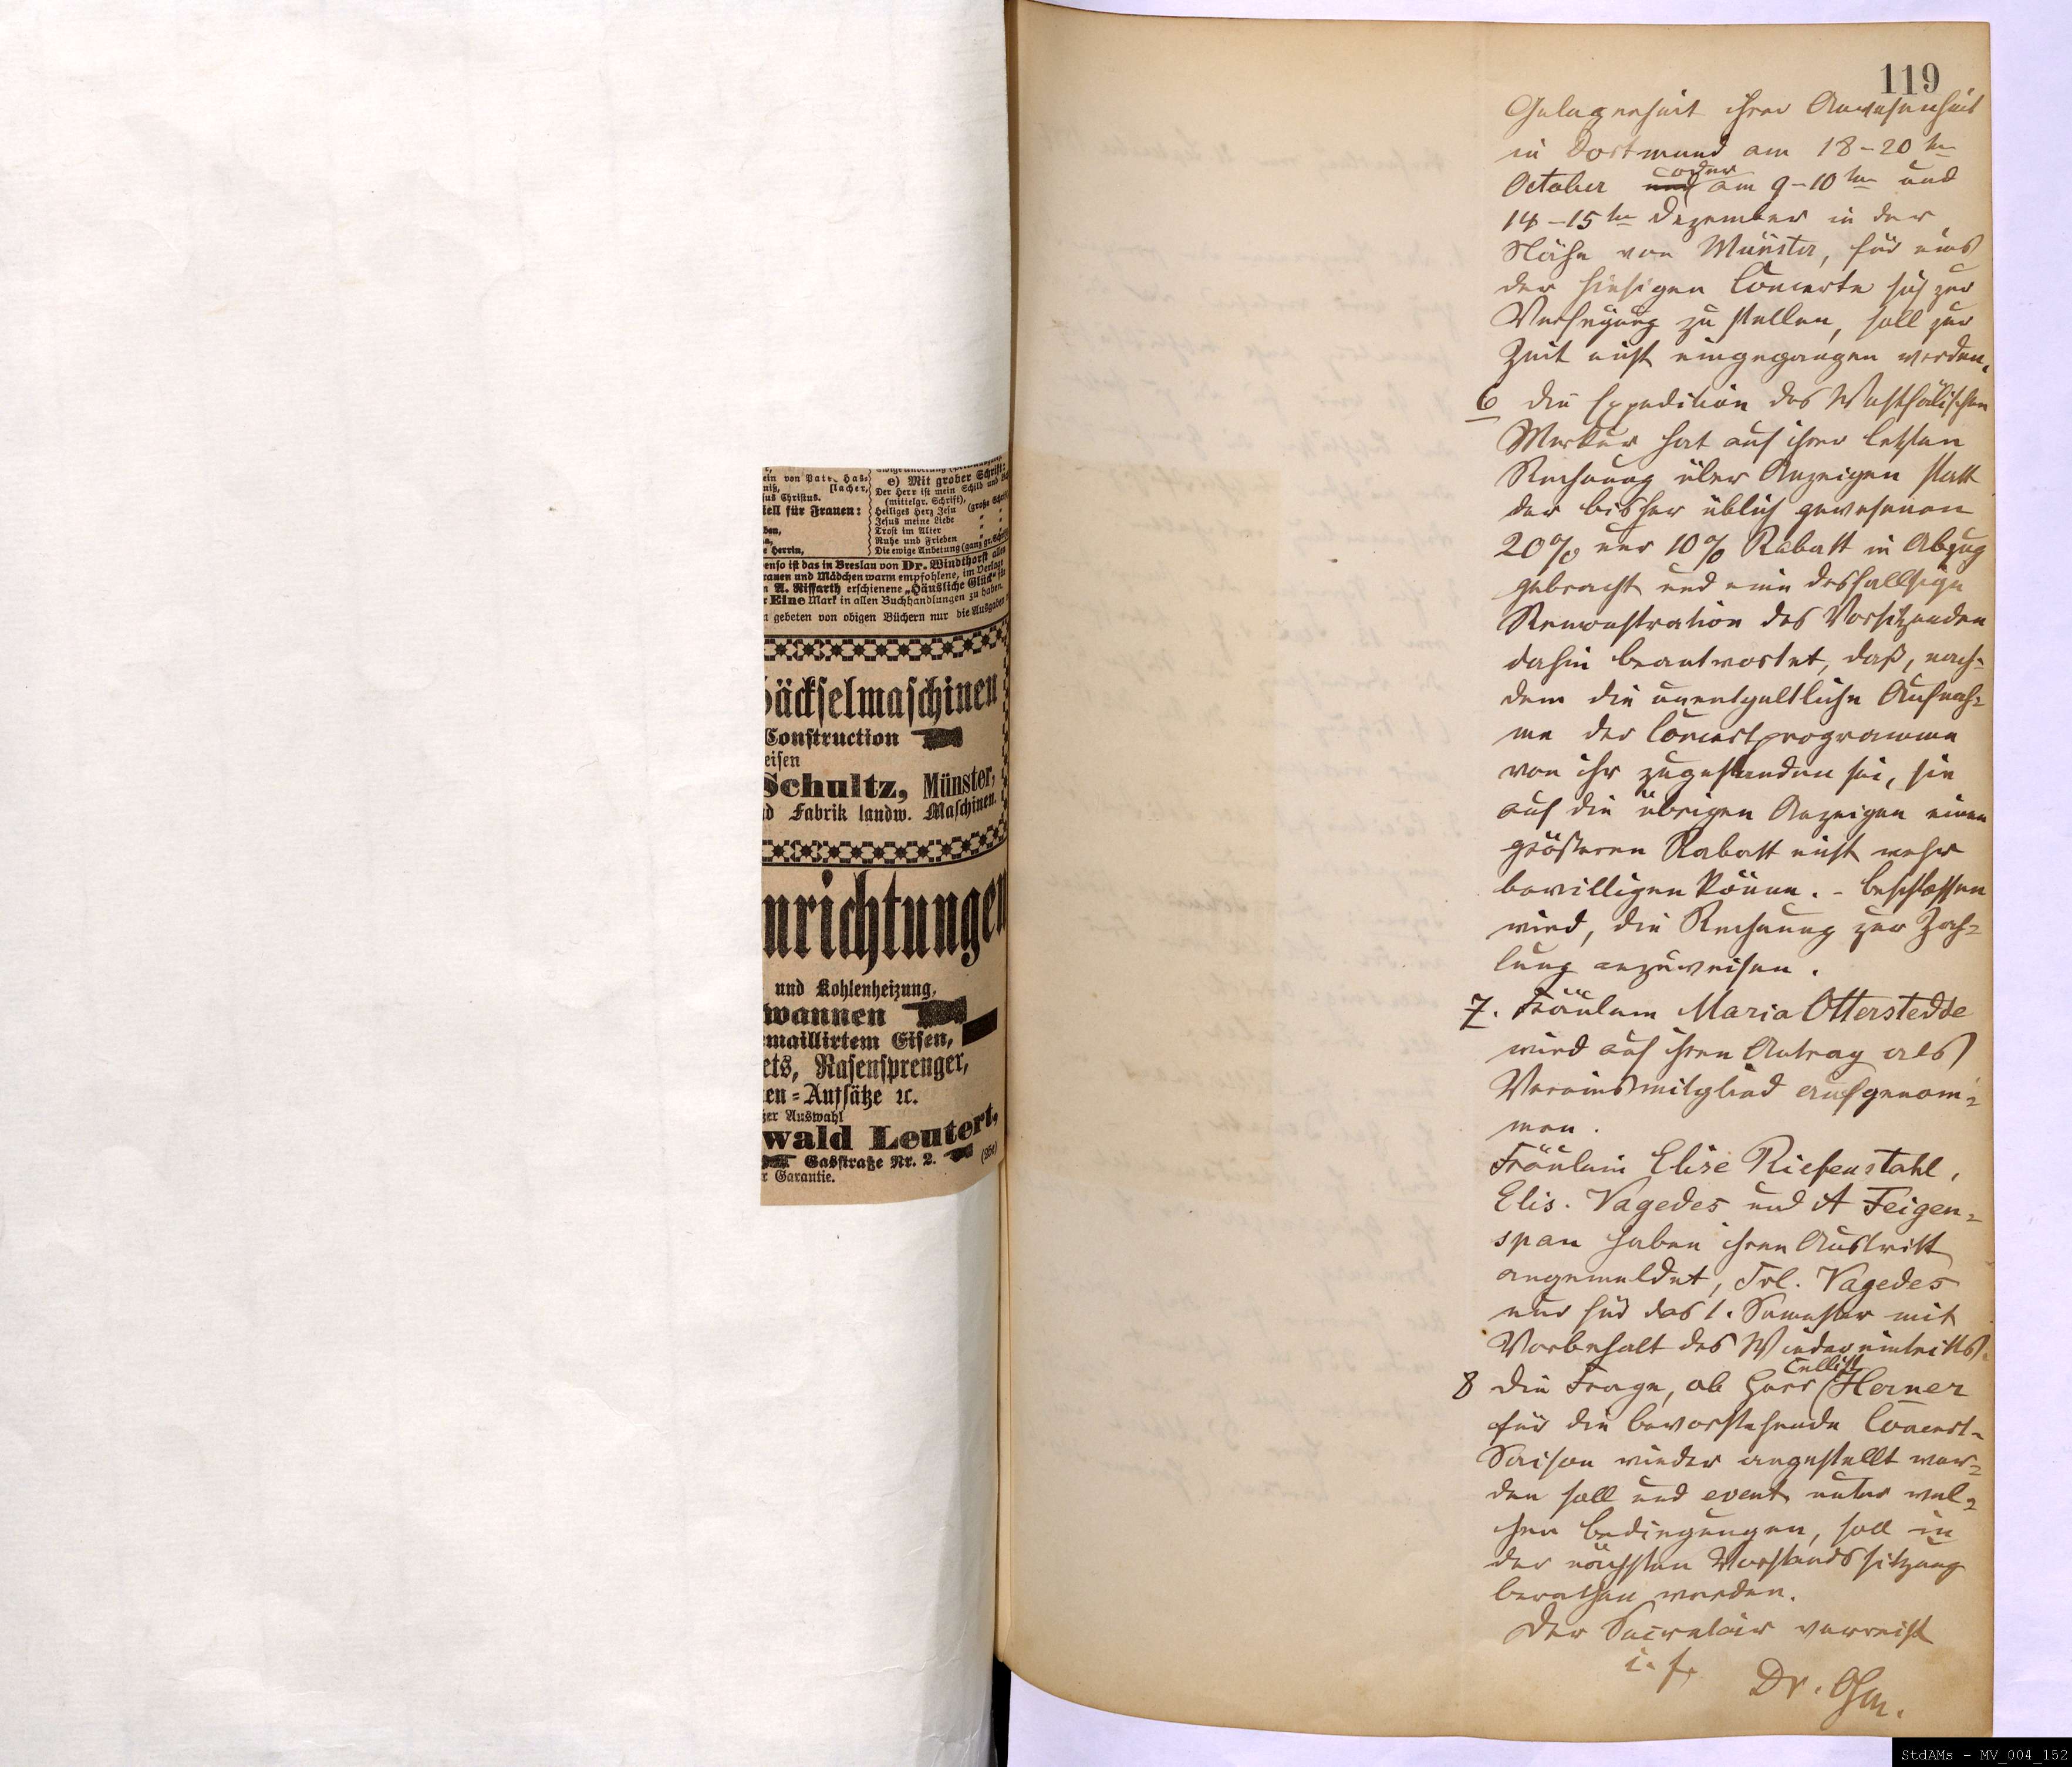 ein von Pate. Has-
niß, [lacher,
sus Christus.
iell für Frauen:
ben,
n,
e Herrin,
e) Mit grober Schrift:
Der Herr ist mein Schild und
(mittelgr. Schrift),
Heiliges Herz Jesu (große Schrift
Jesus meine Liebe " "
Trost im Alter " "
Ruhe und Frieden " "
Die ewige Anbetung (ganz gr. Schrift
enso ist das in Breslau von Dr. Windthorst allen
rauen und Mädchen warm empfohlene, im Verlage
n A. Riffarth erschienene „Häusliche Glück" für
r Eine Mark in allen Buchhandlungen zu haben.
n gebeten von obigen Büchern nur die Ausgaben
häckselmaschinen
Construction
eisen
Schultz, Münster,
d Fabrik landw. Maschinen.
nrichtungen
und Kohlenheizung,
wannen
emaillirtem Eisen,
ets, Rasensprenger,
en-Aufsätze ꝛc.
zer Auswahl
wald Leutert,
Gasstraße Nr. 2.
r Garantie.
119
Gelegenheit ihrer Anwesenheit
in Dortmund am 18-20ten
October und oder am 9-10ten und
14-15ten Dezember in der
Nähe von Münster, für eins
der hiesigen Concerte sich zur
Verfügung zu stellen, soll zur
Zeit nicht eingegangen werden.
6 Die Expedition des Westfälischen
Merkur hat auf ihrer letzten
Rechnung über Anzeigen statt
der bisher üblich gewesenen
20% nur 10% Rabatt in Abzug
gebracht und eine desfallsige
Remonstration des Vorsitzenden
dahin beantwortet, daß, nach-
dem die unentgeltliche Aufnah-
me der Concertprogramme
von ihr zugestanden sei, sie
auf die übrigen Anzeigen einen
größeren Rabatt nicht mehr
bewilligen könne. - Beschlossen
wird, die Rechnung zur Zah-
lung anzuweisen.
7. Fräulein Maria Otterstedde
wird auf ihren Antrag als
Vereinsmitglied aufgenom-
men.
Fräulein Elise Riefenstahl,
Elis. Vagedes und A Feigen-
span haben ihren Austritt
angemeldet, Frl. Vagedes
nur für das 1. Semester mit
Vorbehalt des Wiedereintritts.
8 Die Frage, ob Herr Cellist Herner
für die bevorstehende Concert-
Saison wieder angestellt wer-
den soll und event. unter wel-
chen Bedingungen, soll in
der nächsten Vorstandssitzung
berathen werden.
Der Secretair verreist
i. f.
Dr. Ohm.
StdAMs - MV_004_152